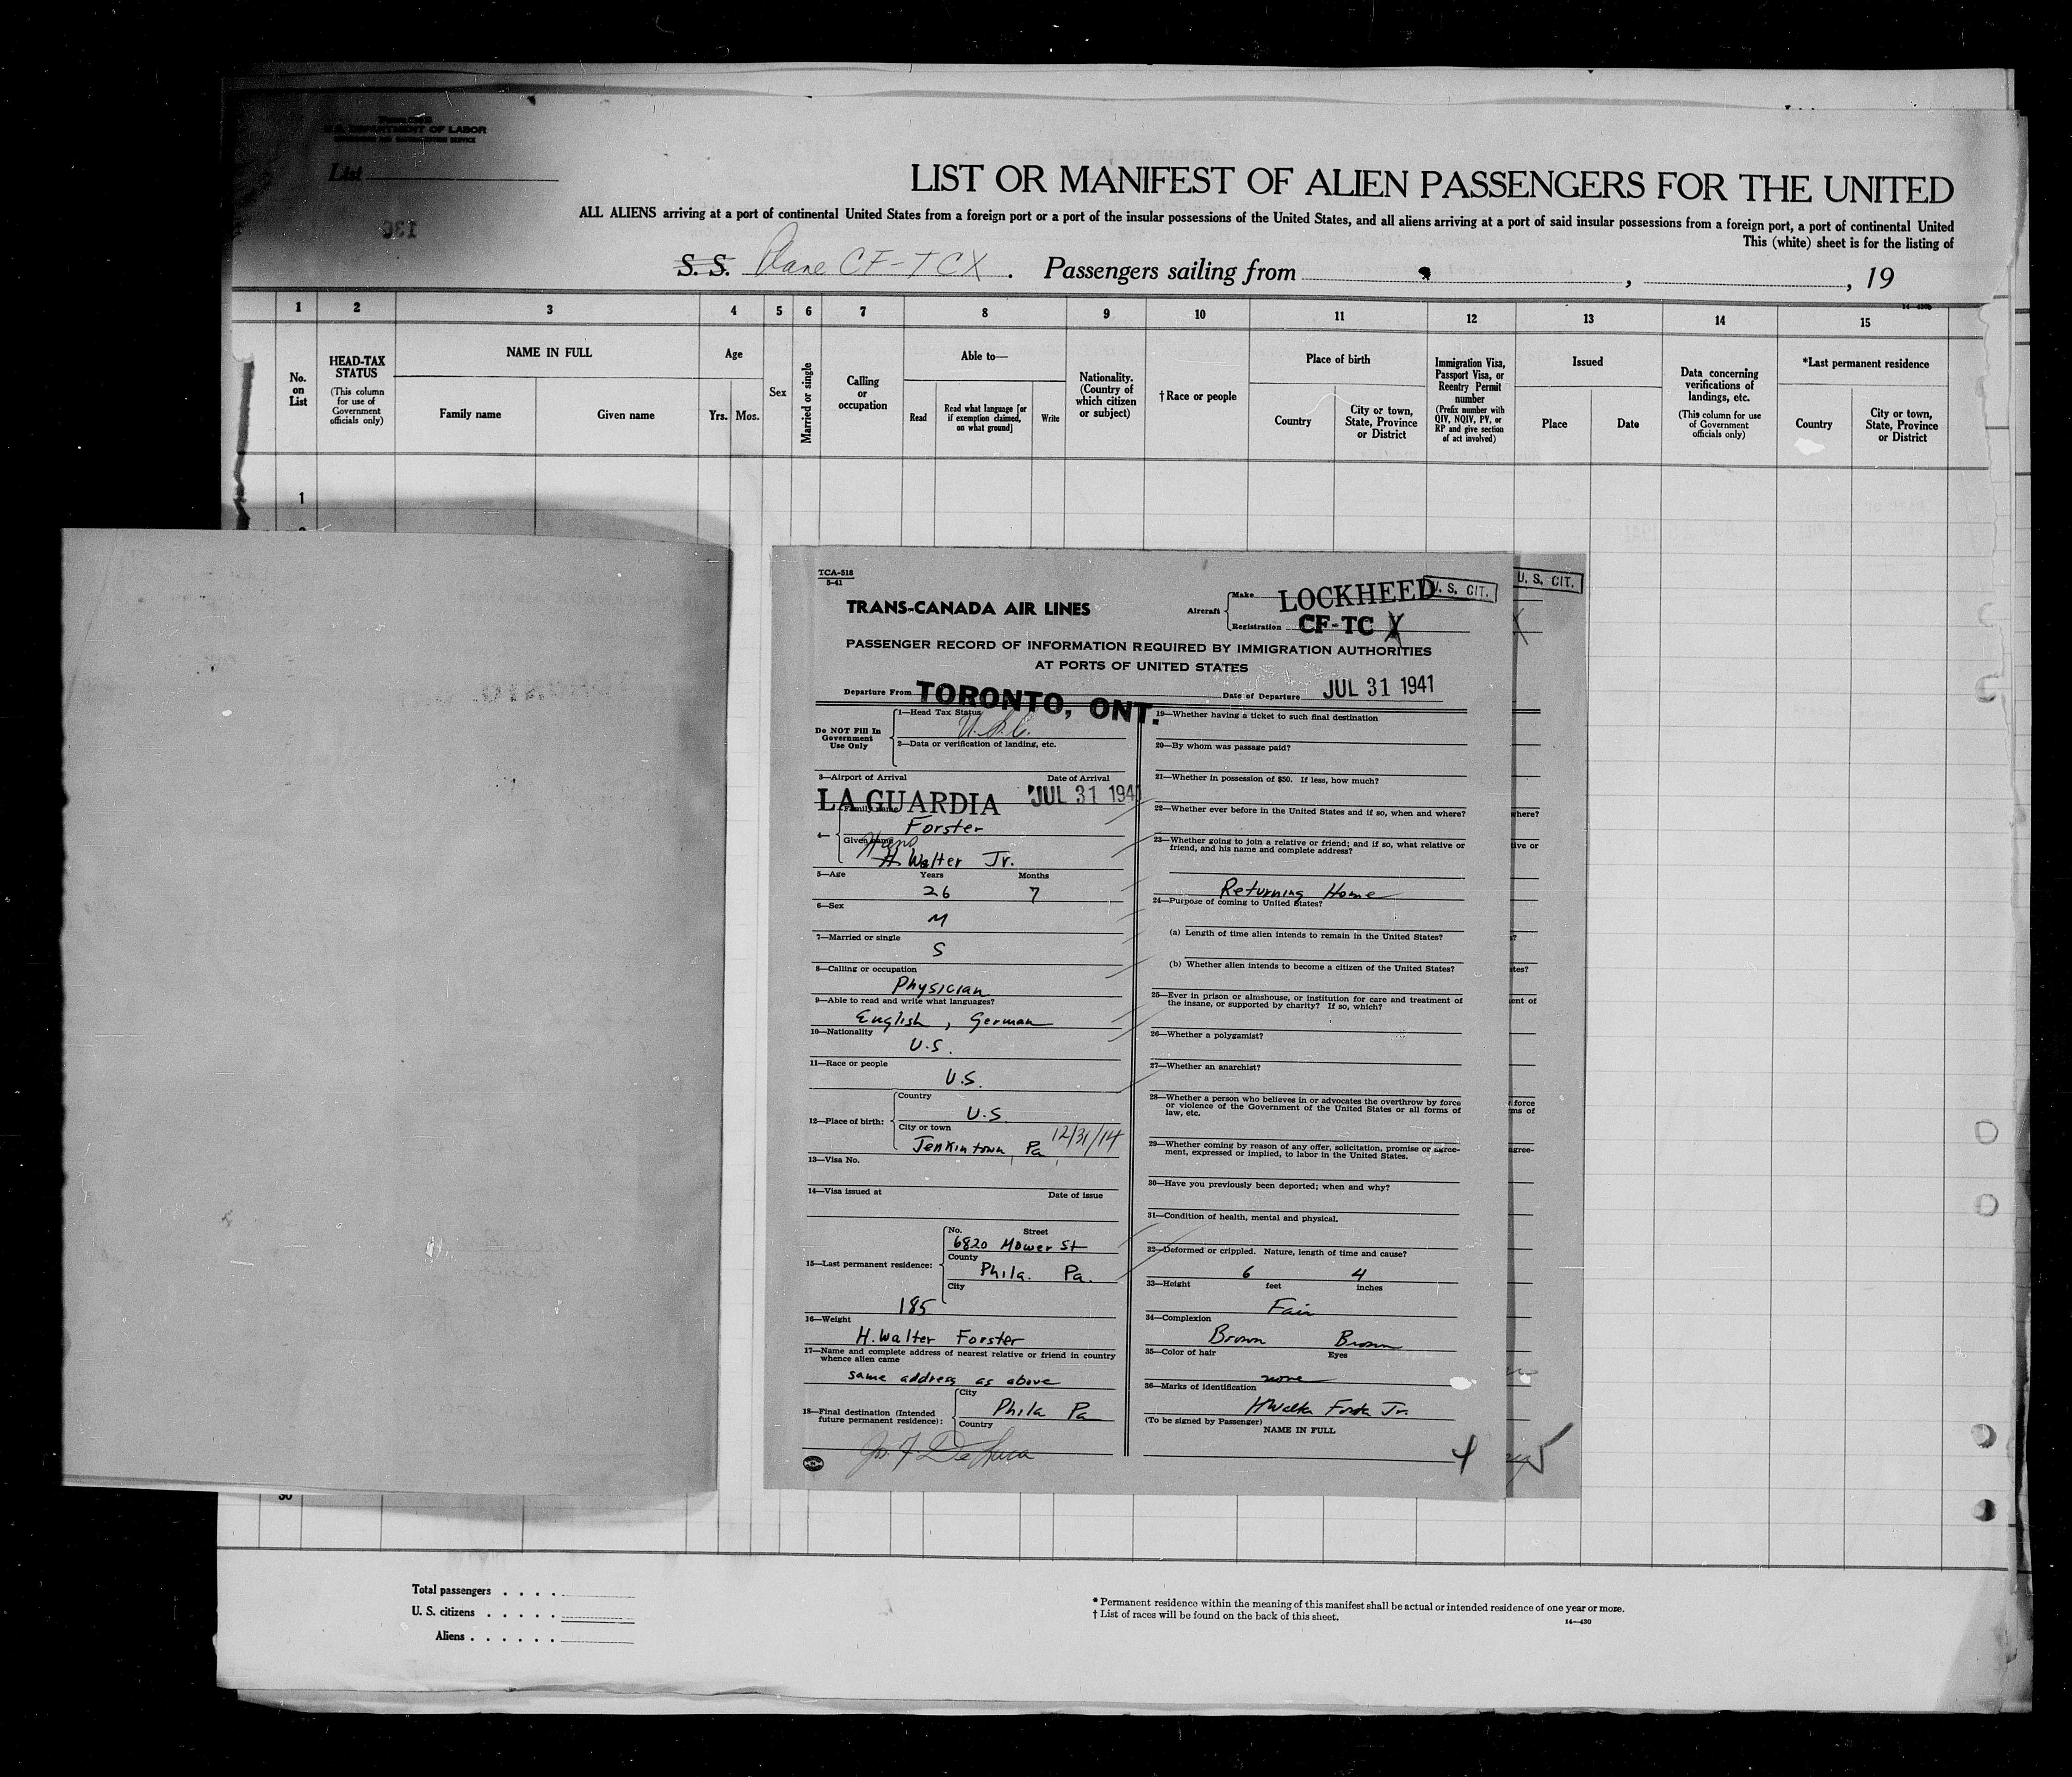 U.S. DEPARTMENT OF LABOR
List
LIST OR MANIFEST OF ALIEN PASSENGERS FOR THE UNITED
ALL ALIENS arriving at a port of continental United States from a foreign port or a port of the insular possessions of the United States, and all aliens arriving at a port of said insular possessions from a foreign port, a port of continental United
This (white) sheet is for the listing of
S. S. Plane CF-TCX . Passengers sailing from , , 19
14-430b
1 2 3 4 5 6 7 8 9 10 11 12 13 14 15
No. on List
HEAD-TAX STATUS
(This column for use of Government officials only)
NAME IN FULL
Family name
Given name
Age
Yrs. Mos.
Sex
Married or single
Calling or occupation
Able to—
Read
Read what language [or if exemption claimed, on what ground]
Write
Nationality. (Country of which citizen or subject)
†Race or people
Place of birth
Country
City or town, State, Province or District
Immigration Visa, Passport Visa, or Reentry Permit number
(Prefix number with QIV, NQIV, PV, or RP and give section of act involved)
Issued
Place
Date
Data concerning verifications of landings, etc.
(This column for use of Government officials only)
*Last permanent residence
Country
City or town, State, Province or District
1
TCA-518
5-41
TRANS-CANADA AIR LINES
Aircraft
Make LOCKHEED
Registration CF-TC X
U. S. CIT.
U. S. CIT.
PASSENGER RECORD OF INFORMATION REQUIRED BY IMMIGRATION AUTHORITIES
AT PORTS OF UNITED STATES
Departure From TORONTO, ONT. Date of Departure JUL 31 1941
Do NOT Fill In Government Use Only
1—Head Tax Status
U.S.C.
2—Data or verification of landing, etc.
3—Airport of Arrival Date of Arrival
LA GUARDIA JUL 31 194
4—
Family name
Forster
Given name
Hans
H Walter Jr.
5—Age Years Months
26 7
6—Sex
M
7—Married or single
S
8—Calling or occupation
Physician
9—Able to read and write what languages?
English, German
10—Nationality
U.S.
11—Race or people
U.S.
12—Place of birth:
Country
U.S
City or town
Jenkintown, Pa 12/31/14
13—Visa No.
14—Visa issued at Date of issue
15—Last permanent residence:
No. Street
6820 Mower St
County
Phila. Pa.
City
185
16—Weight
H. Walter Forster
17—Name and complete address of nearest relative or friend in country whence alien came
same address as above
18—Final destination (Intended future permanent residence):
City
Phila Pa
Country
19—Whether having a ticket to such final destination
20—By whom was passage paid?
21—Whether in possession of $50. If less, how much?
22—Whether ever before in the United States and if so, when and where?
23—Whether going to join a relative or friend; and if so, what relative or friend, and his name and complete address?
Returning Home
24—Purpose of coming to United States?
(a) Length of time alien intends to remain in the United States?
(b) Whether alien intends to become a citizen of the United States?
25—Ever in prison or almshouse, or institution for care and treatment of the insane, or supported by charity? If so, which?
26—Whether a polygamist?
27—Whether an anarchist?
28—Whether a person who believes in or advocates the overthrow by force or violence of the Government of the United States or all forms of law, etc.
29—Whether coming by reason of any offer, solicitation, promise or agreement, expressed or implied, to labor in the United States.
30—Have you previously been deported; when and why?
31—Condition of health, mental and physical.
32—Deformed or crippled. Nature, length of time and cause?
6 4
33—Height feet inches
Fair
34—Complexion
Brown Brown
35—Color of hair Eyes
none
36—Marks of identification
HWalter Forster Jr.
(To be signed by Passenger)
NAME IN FULL
4
5
30
Total passengers
U. S. citizens
Aliens
* Permanent residence within the meaning of this manifest shall be actual or intended residence of one year or more.
† List of races will be found on the back of this sheet.
14—430